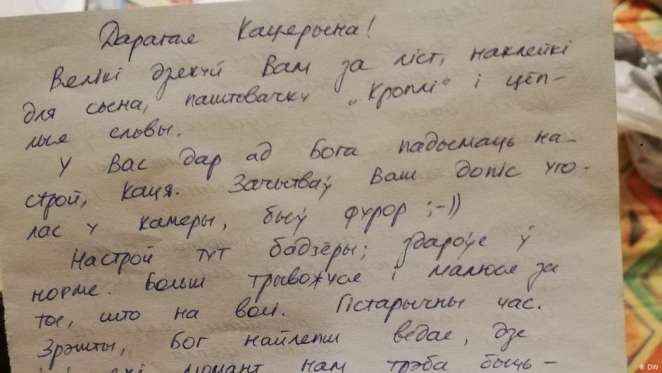 Дарагая Кацярына!
Вялікі дзякуй Вам за ліст, наклейкі
для сына, паштовачку „Кроплі" і цёп-
лыя словы.
У Вас дар ад Бога падымаць на-
строй, Каця. Зачытваў Ваш допіс уго-
лас у камеры, быў фурор ;-))
Настрой тут бадзёры; здароўе ў
норме. Больш трывожуся і малюся за
тое, што на волі. Гістарычны час.
Зрэшты, Бог найлепш ведае, дзе
момант нам трэба быць-
DW